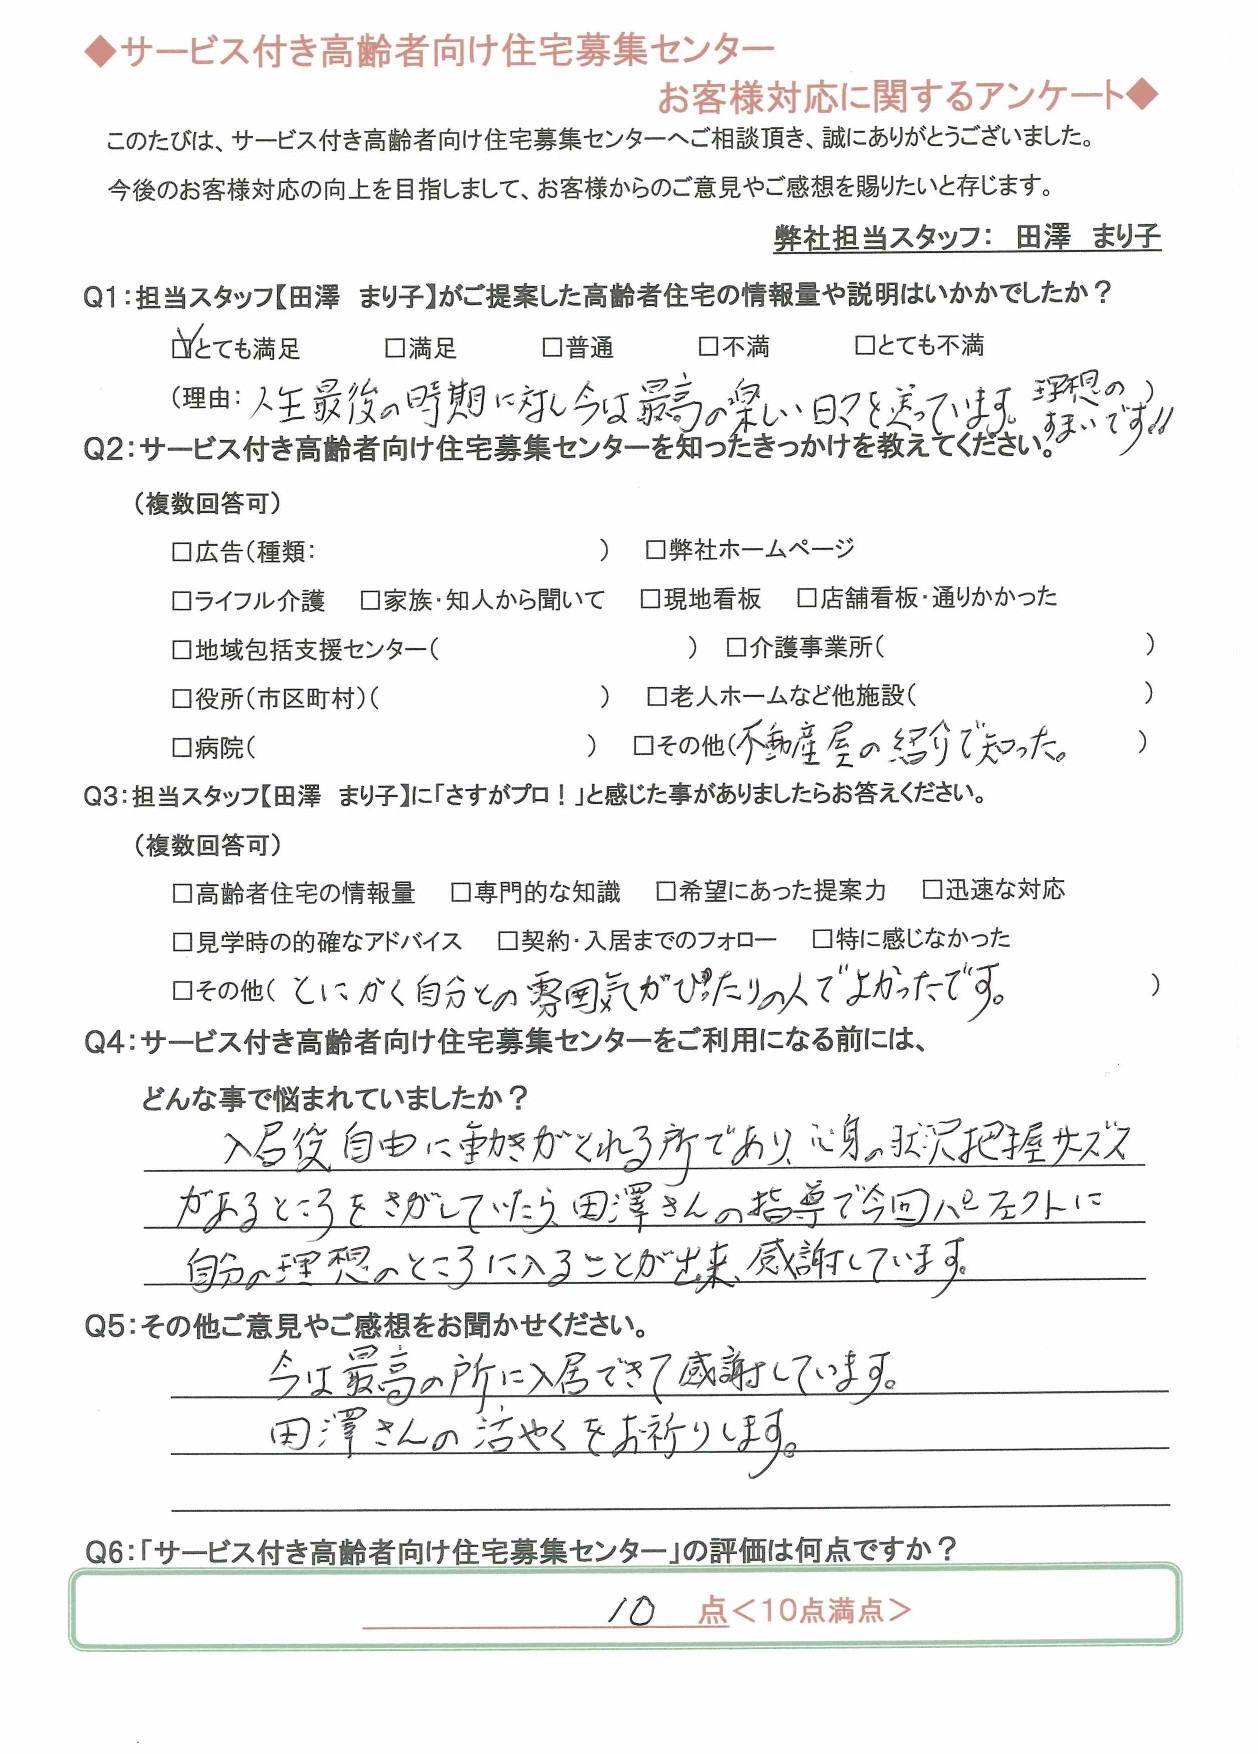 ◆サービス付き高齢者向け住宅募集センター
お客様対応に関するアンケート◆
このたびは、サービス付き高齢者向け住宅募集センターへご相談頂き、誠にありがとうございました。
今後のお客様対応の向上を目指しまして、お客様からのご意見やご感想を賜りたいと存じます。
弊社担当スタッフ： 田澤 まり子
Q1：担当スタッフ【田澤 まり子】がご提案した高齢者住宅の情報量や説明はいかかでしたか？
☑とても満足 □満足 □普通 □不満 □とても不満
（理由：人生最後の時期に対し今は最高の楽しい日々を送っています。理想のすまいです!!）
Q2：サービス付き高齢者向け住宅募集センターを知ったきっかけを教えてください。
（複数回答可）
□広告（種類： ） □弊社ホームページ
□ライフル介護 □家族・知人から聞いて □現地看板 □店舗看板・通りかかった
□地域包括支援センター（ ） □介護事業所（ ）
□役所（市区町村）（ ） □老人ホームなど他施設（ ）
□病院（ ） □その他（不動産屋の紹介で知った。 ）
Q3：担当スタッフ【田澤 まり子】に「さすがプロ！」と感じた事がありましたらお答えください。
（複数回答可）
□高齢者住宅の情報量 □専門的な知識 □希望にあった提案力 □迅速な対応
□見学時の的確なアドバイス □契約・入居までのフォロー □特に感じなかった
□その他（とにかく自分との雰囲気がぴったりの人でよかったです。 ）
Q4：サービス付き高齢者向け住宅募集センターをご利用になる前には、
どんな事で悩まれていましたか？
入居後自由に動きがとれる所であり、心身の状況把握サービス
があるところをさがしていたら、田澤さんの指導で今回パーフェクトに
自分の理想のところに入ることが出来、感謝しています。
Q5：その他ご意見やご感想をお聞かせください。
今は最高の所に入居できて感謝しています。
田澤さんの活やくをお祈りします。
Q6：「サービス付き高齢者向け住宅募集センター」の評価は何点ですか？
10 点＜10点満点＞